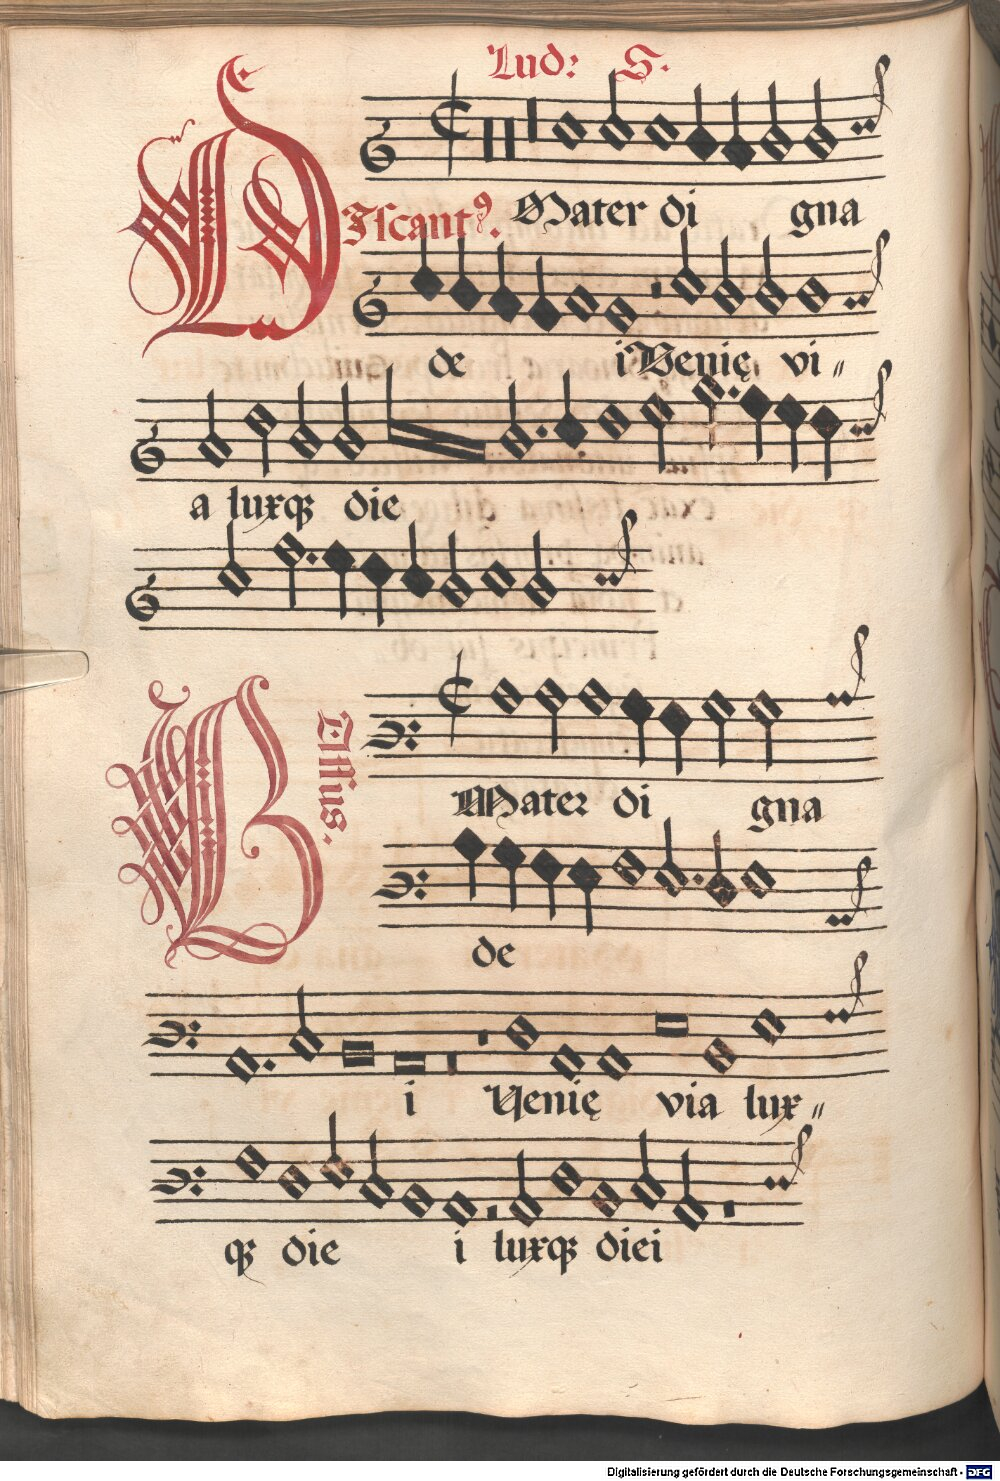 Lud: S.
DIscant9. Mater di gna
de i Venię vi〃
a luxqꝫ die
BAssus.
Mater di gna
de
i Venię via lux〃
qꝫ die i luxqꝫ diei
Digitalisierung gefördert durch die Deutsche Forschungsgemeinschaft - DFG